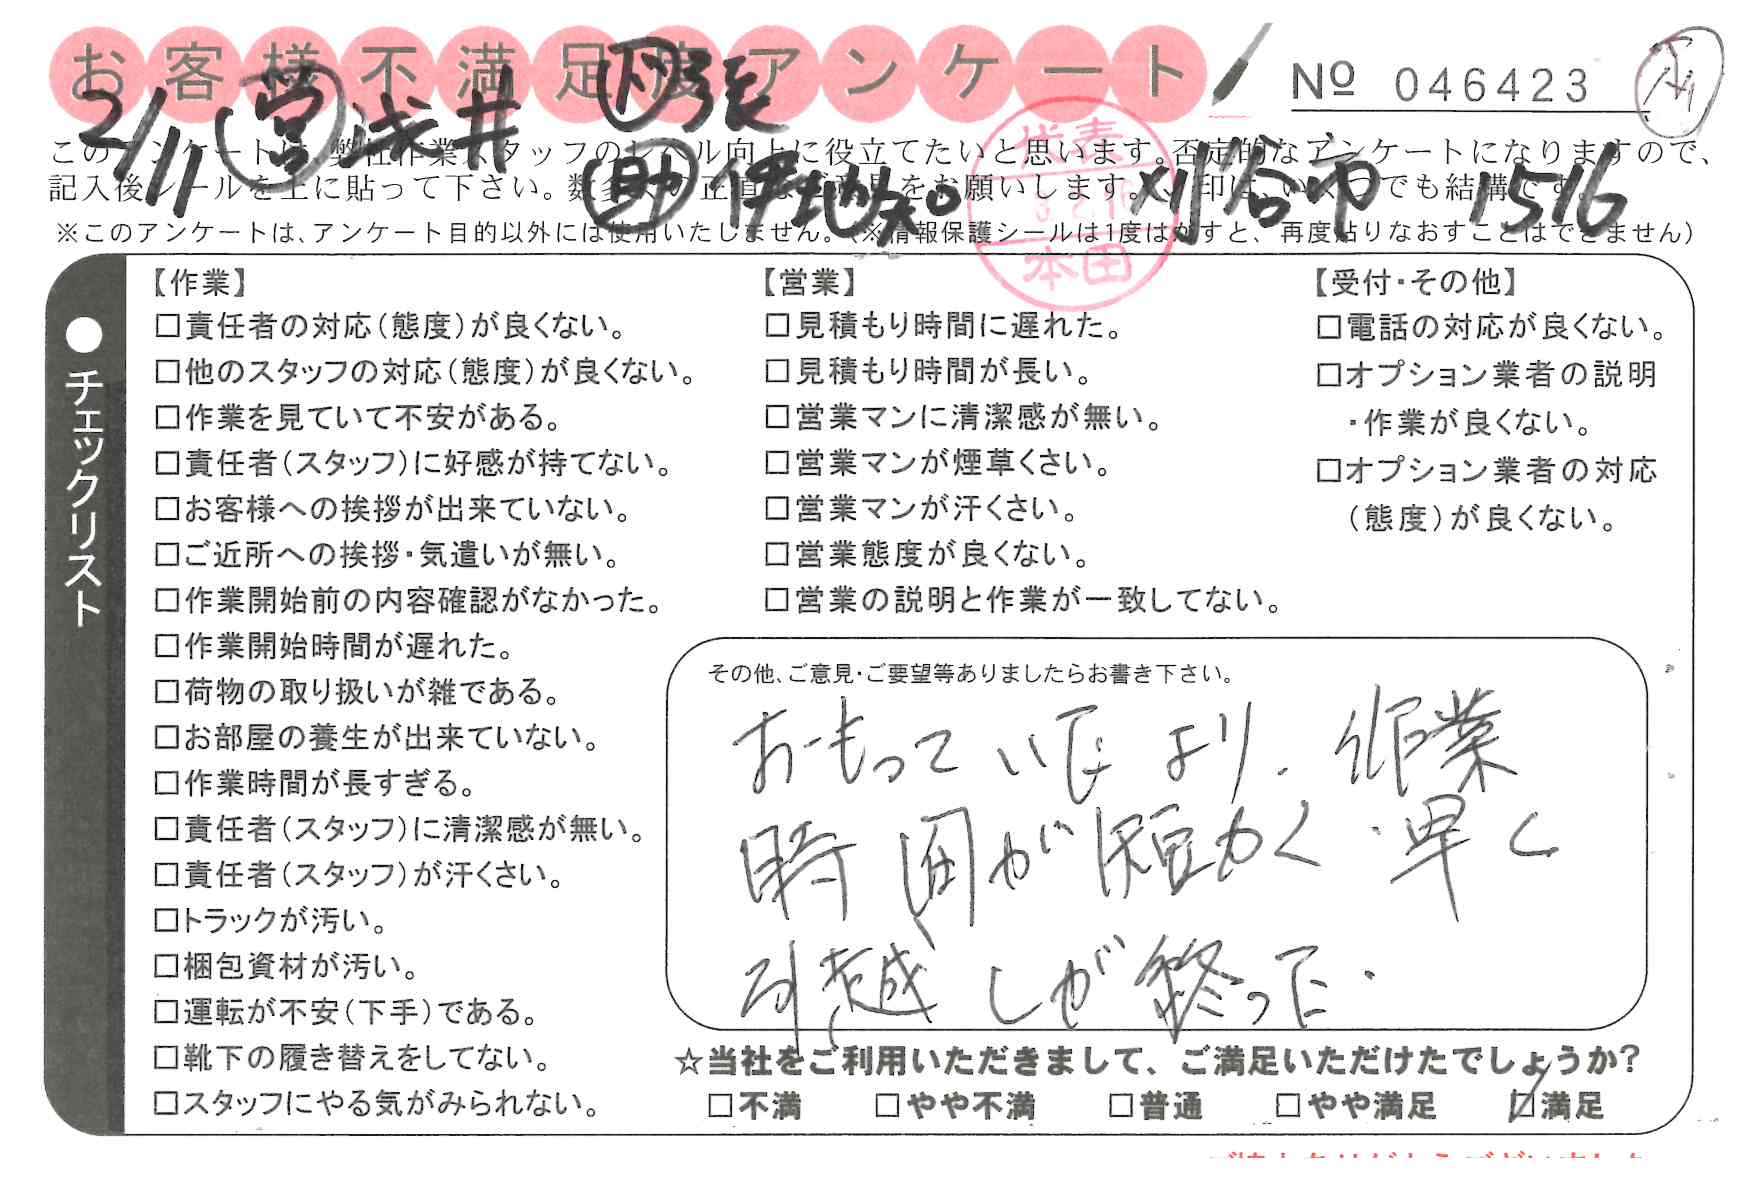 お客様不満足度アンケート
№ 046423
2/11 営 浅井
助 伊地知 刈谷市 1516
このアンケートは、弊社作業スタッフのレベル向上に役立てたいと思います。否定的なアンケートになりますので、
記入後シールを上に貼って下さい。
をお願いします。
印は、いくつでも結構です。
※このアンケートは、アンケート目的以外には使用いたしません。(※情報保護シールは1度はがすと、再度貼りなおすことはできません)
代表
本田
●チェックリスト
【作業】
□責任者の対応(態度)が良くない。
□他のスタッフの対応(態度)が良くない。
□作業を見ていて不安がある。
□責任者(スタッフ)に好感が持てない。
□お客様への挨拶が出来ていない。
□ご近所への挨拶・気遣いが無い。
□作業開始前の内容確認がなかった。
□作業開始時間が遅れた。
□荷物の取り扱いが雑である。
□お部屋の養生が出来ていない。
□作業時間が長すぎる。
□責任者(スタッフ)に清潔感が無い。
□責任者(スタッフ)が汗くさい。
□トラックが汚い。
□梱包資材が汚い。
□運転が不安(下手)である。
□靴下の履き替えをしてない。
□スタッフにやる気がみられない。
【営業】
□見積もり時間に遅れた。
□見積もり時間が長い。
□営業マンに清潔感が無い。
□営業マンが煙草くさい。
□営業マンが汗くさい。
□営業態度が良くない。
□営業の説明と作業が一致してない。
【受付・その他】
□電話の対応が良くない。
□オプション業者の説明
・作業が良くない。
□オプション業者の対応
(態度)が良くない。
その他、ご意見・ご要望等ありましたらお書き下さい。
おもっていたより、作業
時間が短かく、早く
引越しが終った。
☆当社をご利用いただきまして、ご満足いただけたでしょうか?
□不満 □やや不満 □普通 □やや満足 ☑満足